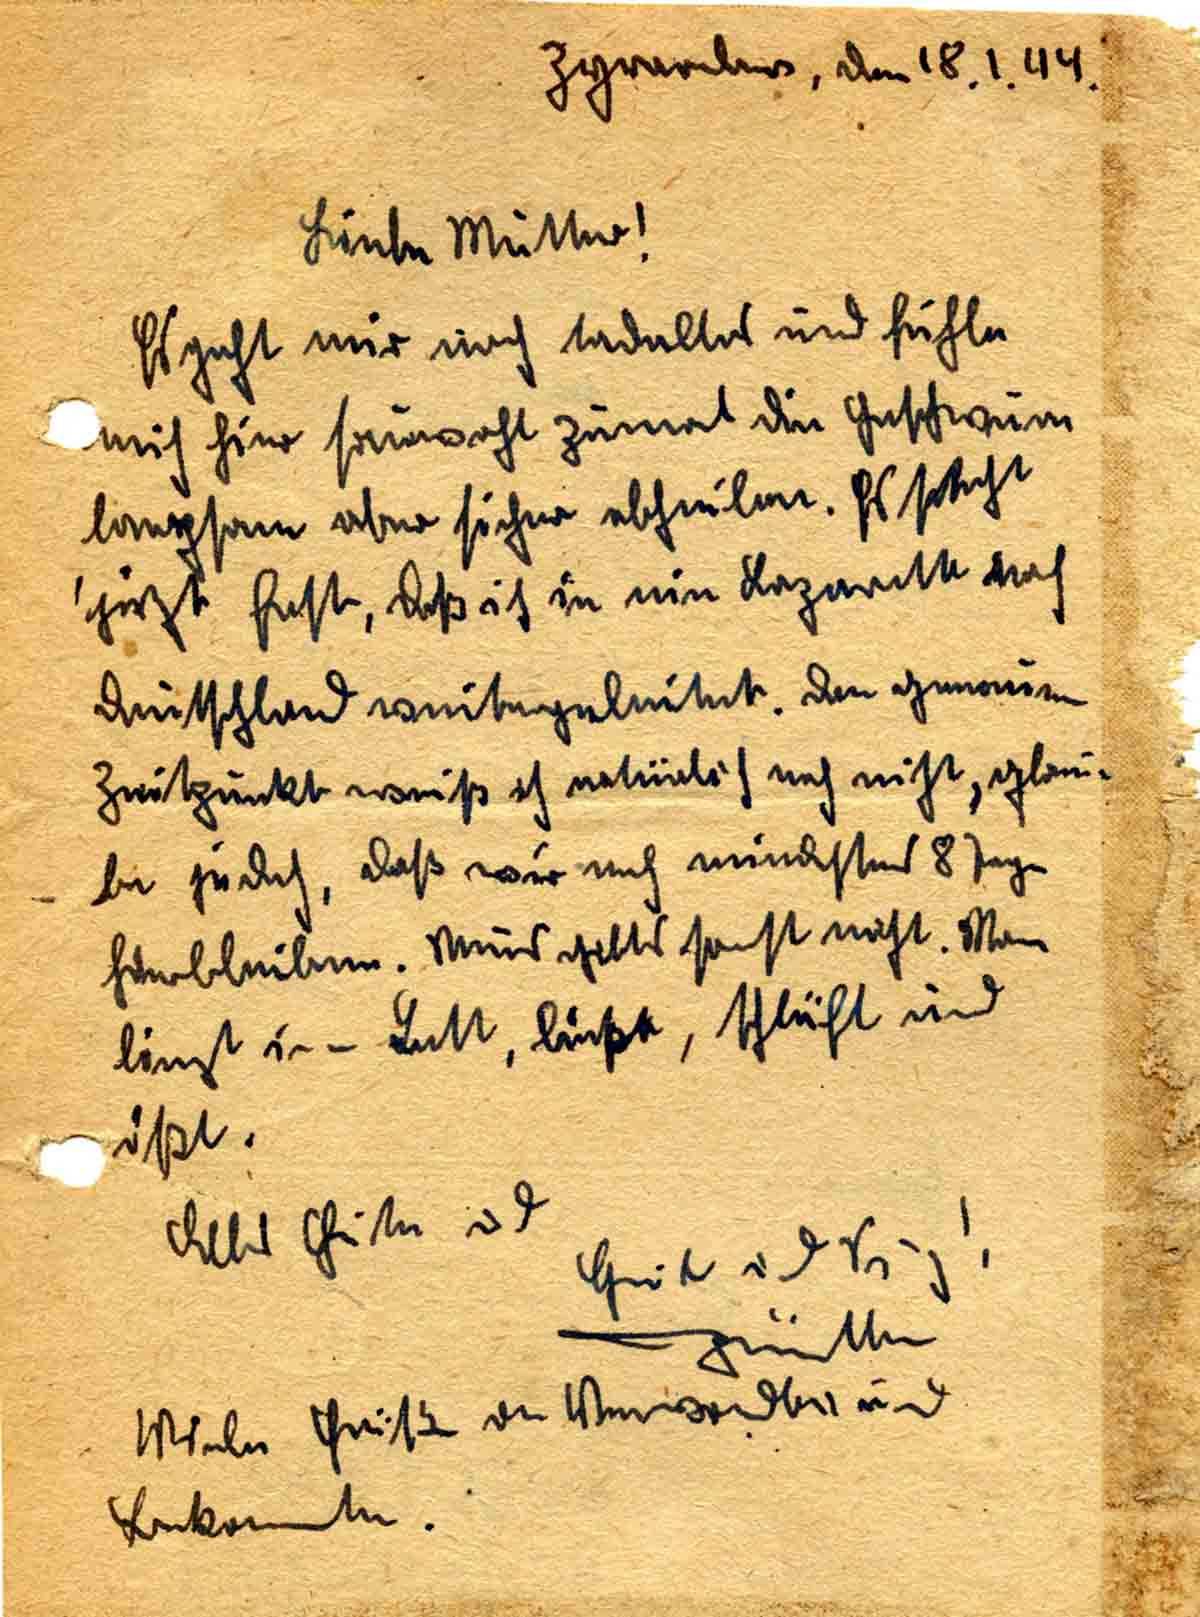 Zyrardow, den 18.1.44.
Liebe Mutter!
Es geht mir noch tadellos und fühle
mich hier sauwohl zumal die Geschwüre
langsam aber sicher abheilen. Es steht
jetzt fest, daß ich in ein Lazarett nach
Deutschland weitergeleitet. Den genauen
Zeitpunkt weiß ich natürlich noch nicht, glau-
be jedoch, daß wir noch mindestens 8 Tage
hierbleiben. Neues gibts sonst nicht. Man
liegt im Bett, ließt, schläft und
ißt.
Alles Gute und
Gruß und
Viele Grüße an Verwandte und
Bekannte.